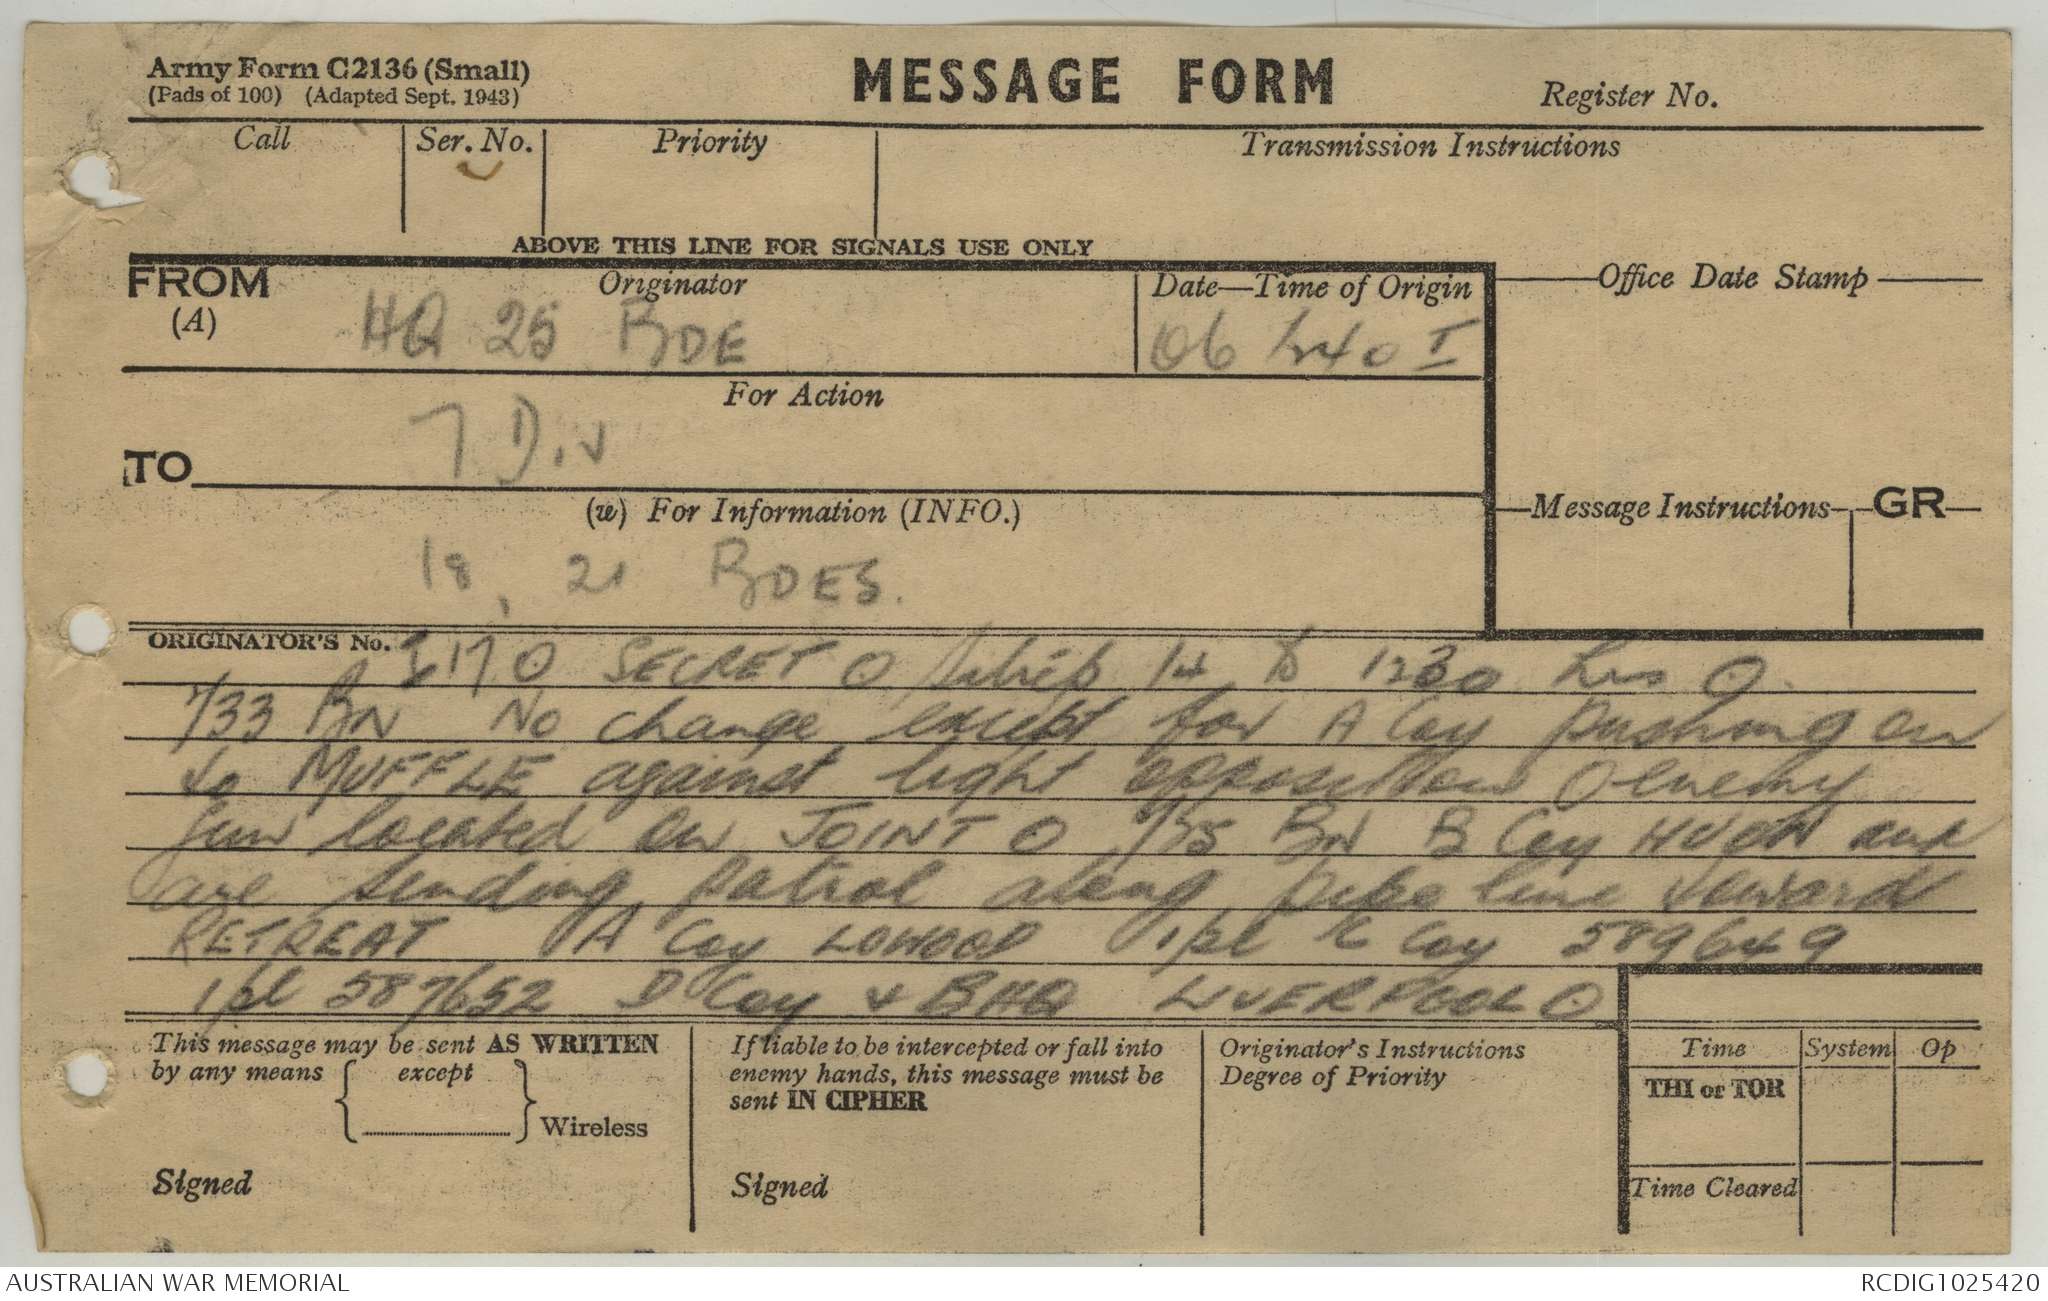 Army Form C2136 (Small)
(Pads of 100) (Adapted Sept. 1943)
MESSAGE FORM
Register No.
Call
Ser. No.
Priority
Transmission Instructions
ABOVE THIS LINE FOR SIGNALS USE ONLY
FROM
(A)
Originator
HQ 25 BDE
Date—Time of Origin
06 1440 I
Office Date Stamp
For Action
7 Div
TO
(w) For Information (INFO.)
18, 21 BDES.
Message Instructions
GR
ORIGINATOR'S No. 170 SECRET O Sitrep 14 to 1230 hrs O.
/33 BN No change except for A Coy pushing on
to MUFFLE against light opposition O enemy
gun located on JOINT O BN B Coy HUGH and
are sending patrol along pipe line toward
RETREAT A Coy LOWOOD 1 pl C Coy 589649
1 pl 587652 D Coy & BHQ LIVERPOOL O
This message may be sent AS WRITTEN
by any means except
Wireless
Signed
If liable to be intercepted or fall into
enemy hands, this message must be
sent IN CIPHER
Signed
Originator's Instructions
Degree of Priority
Time
System
Op
THI or TOR
Time Cleared
AUSTRALIAN WAR MEMORIAL
RCDIG1025420